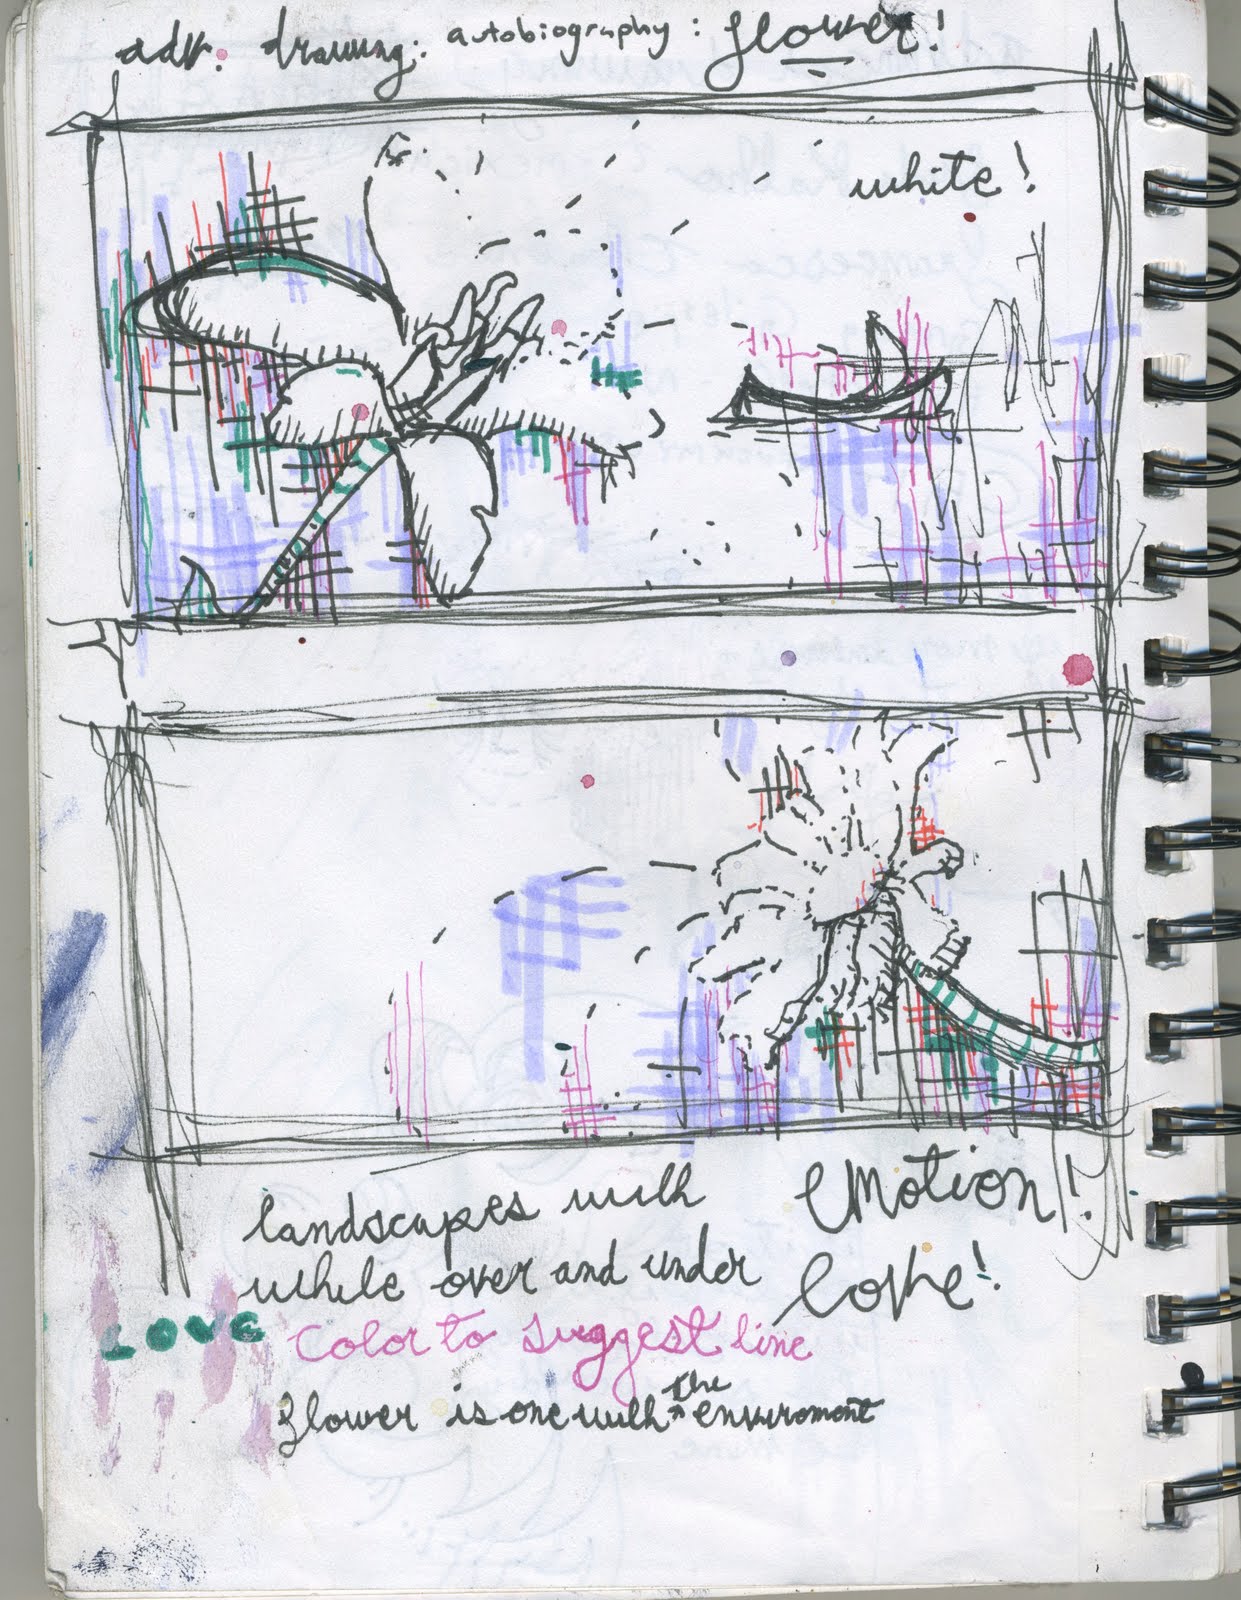 adv. drawing: autobiography: flower!
white!
landscapes with EMOTION!
while over and under love!
LOVE color to suggest line
flower is one with the enviroment